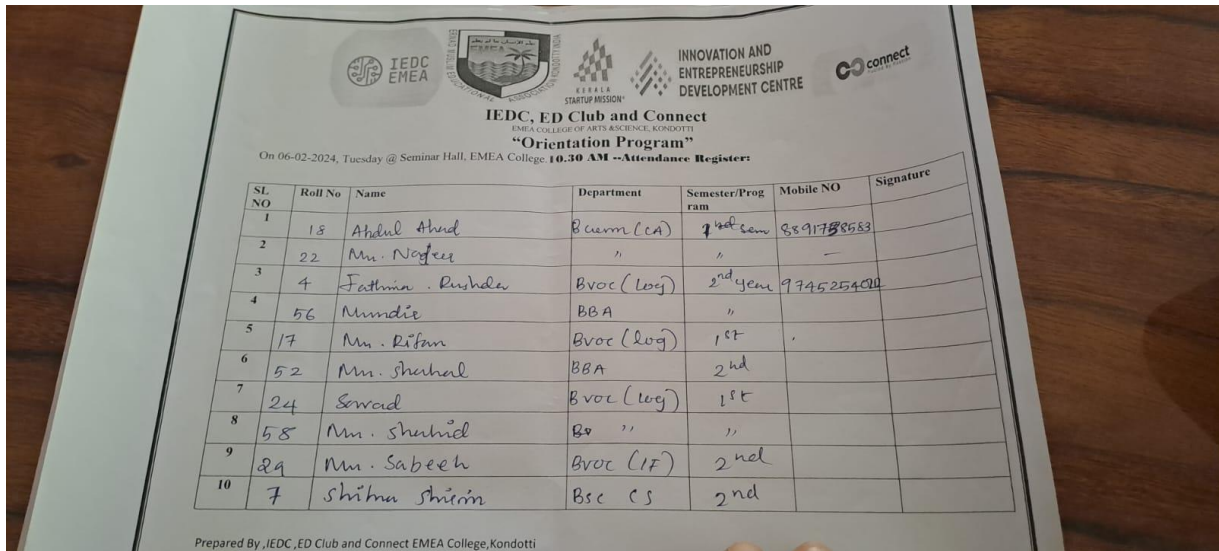 IEDC
EMEA
EMEA
KERALA
STARTUP MISSION
INNOVATION AND
ENTREPRENEURSHIP
DEVELOPMENT CENTRE
connect
IEDC, ED Club and Connect
EMEA COLLEGE OF ARTS &SCIENCE, KONDOTTI
“Orientation Program”
On 06-02-2024, Tuesday @ Seminar Hall, EMEA College. 10.30 AM --Attendance Register:
SL NO Roll No Name Department Semester/Program Mobile NO Signature
1 18 Abdul Ahad (CA) sem
2 22 Mu. " " -
3 4 Fathima . Rushda Bvoc (log) 2nd year
4 56 BBA "
5 17 Mu. Rifan Bvoc (log) 1st
6 52 Mu. BBA 2nd
7 24 Bvoc (log) 1st
8 58 Mu. Shahid " "
9 29 Mu. Sabeeh Bvoc (IF) 2nd
10 7 Bsc CS 2nd
Prepared By ,IEDC ,ED Club and Connect EMEA College,Kondotti